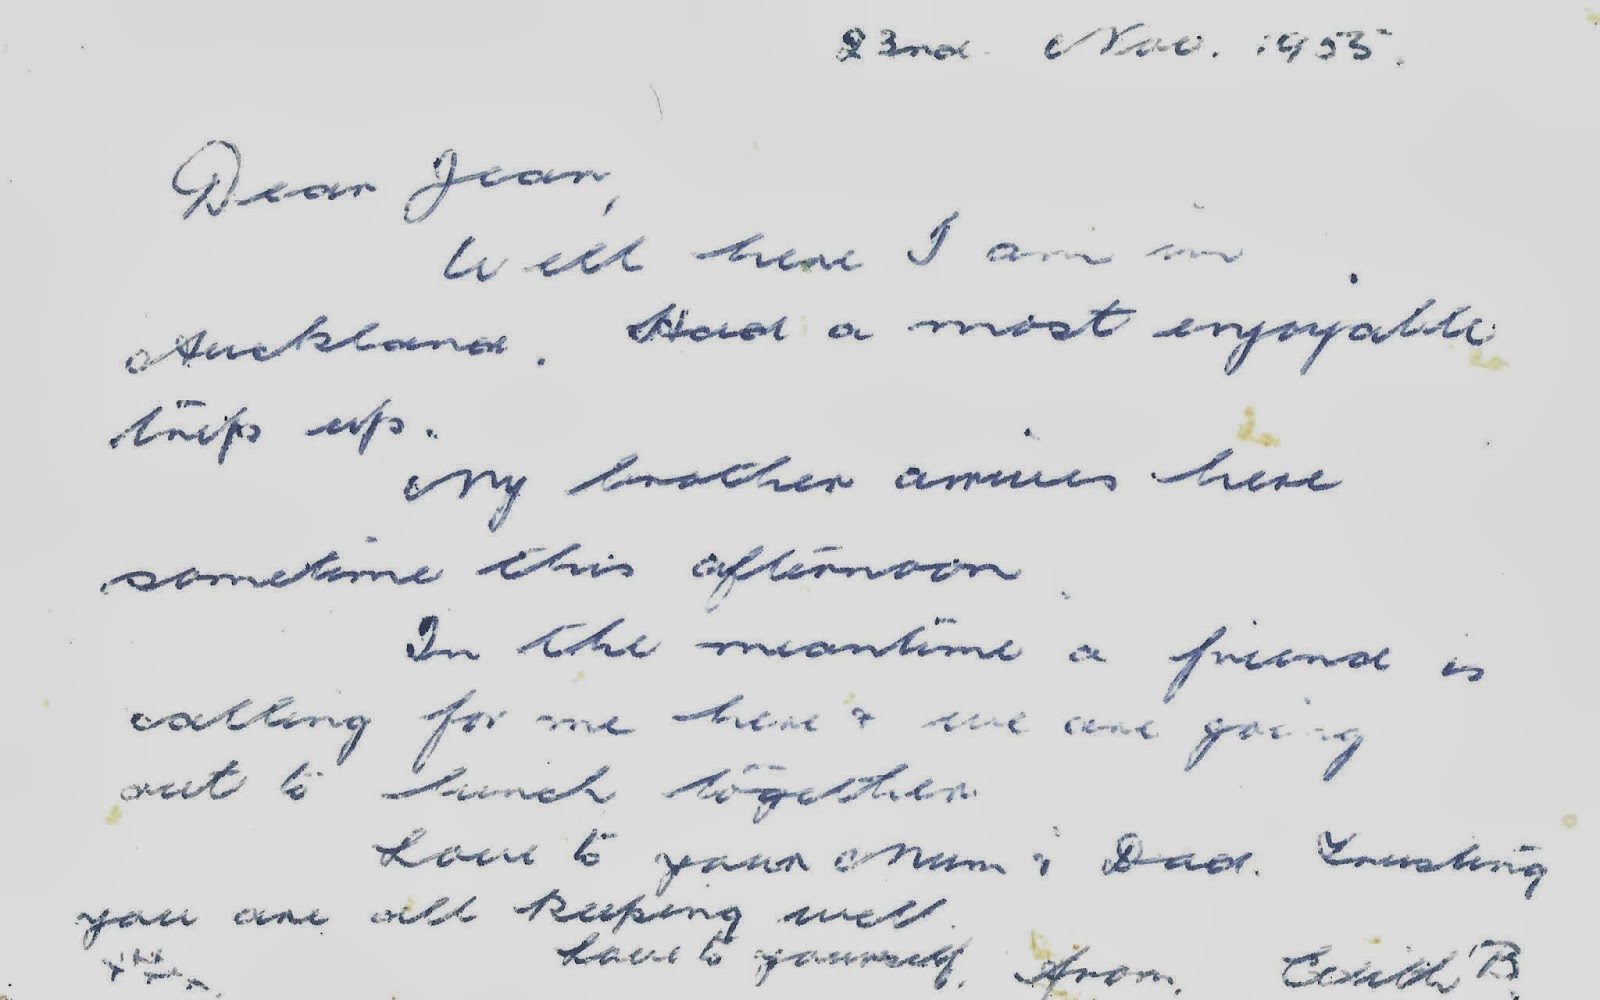 23nd. Nov. 1955.
Dear Jean,
Well here I am in
Auckland. Had a most enjoyable
trip up.
My brother arrives here
sometime this afternoon
In the meantime a friend is
calling for me here & we are going
out to lunch together
Love to your Mum & Dad. Trusting
you are all keeping well.
Love to yourself. From. Edith B.
xxxx